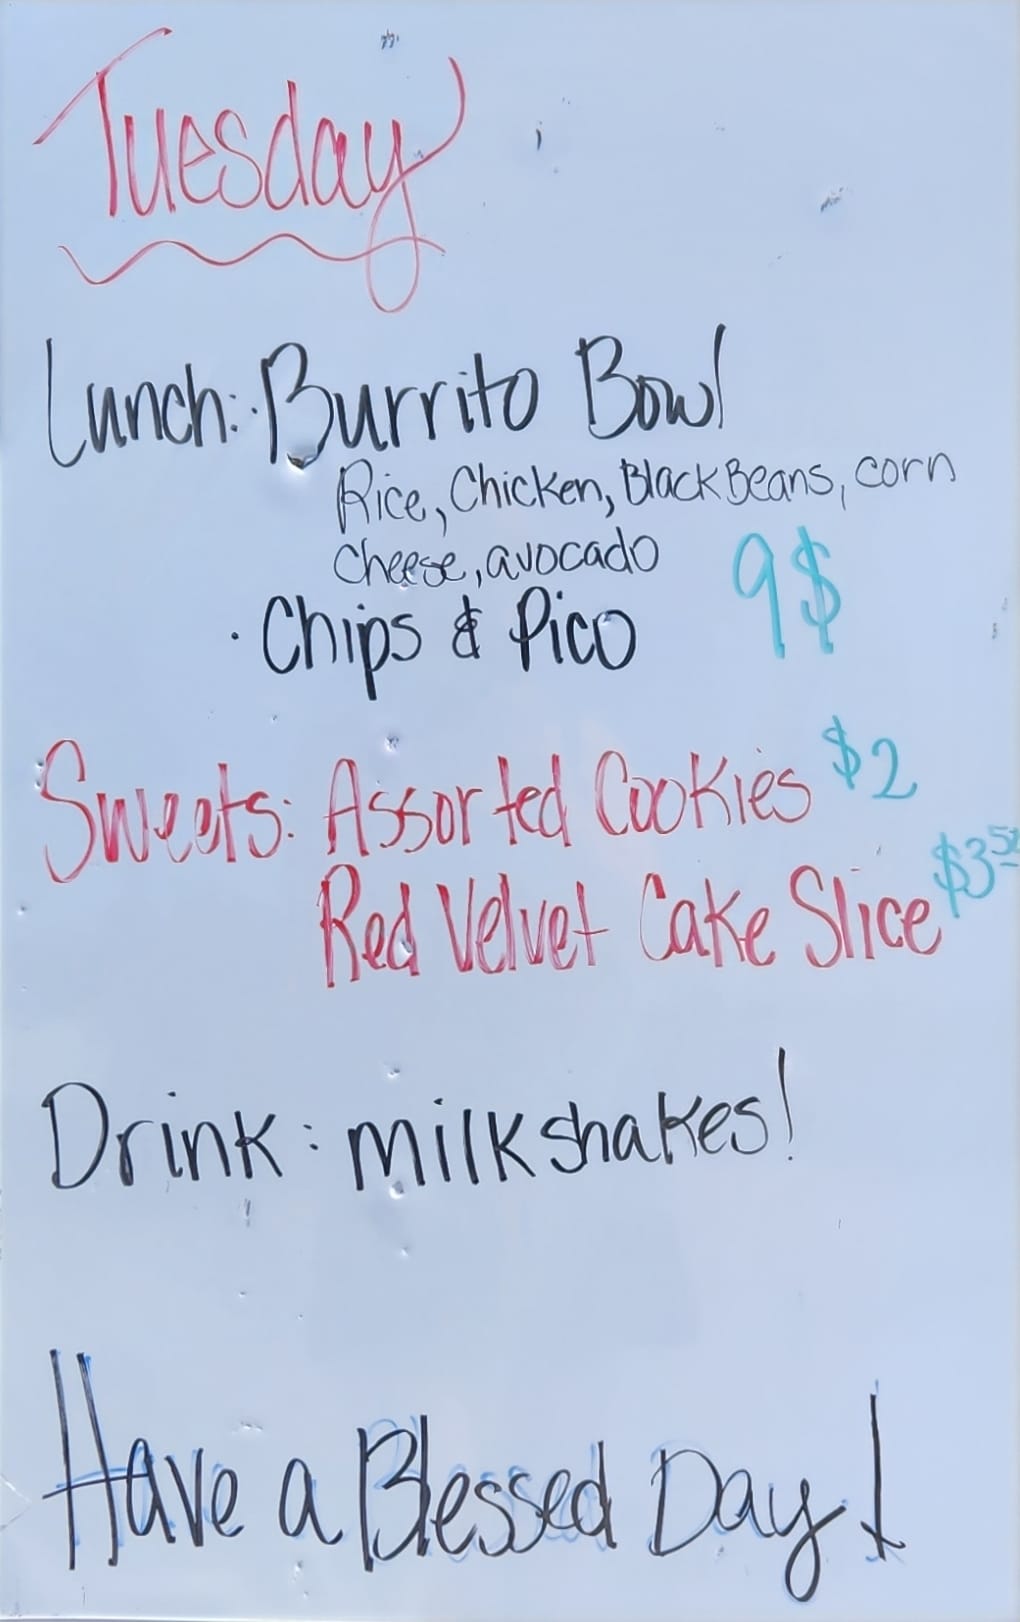 Tuesday
Lunch: · Burrito Bowl
Rice, Chicken, Black Beans, corn
Cheese, avocado
9$
· Chips & Pico
Sweets: Assorted Cookies $2
Red Velvet Cake Slice $3.50
Drink: milkshakes!
Have a Blessed Day!